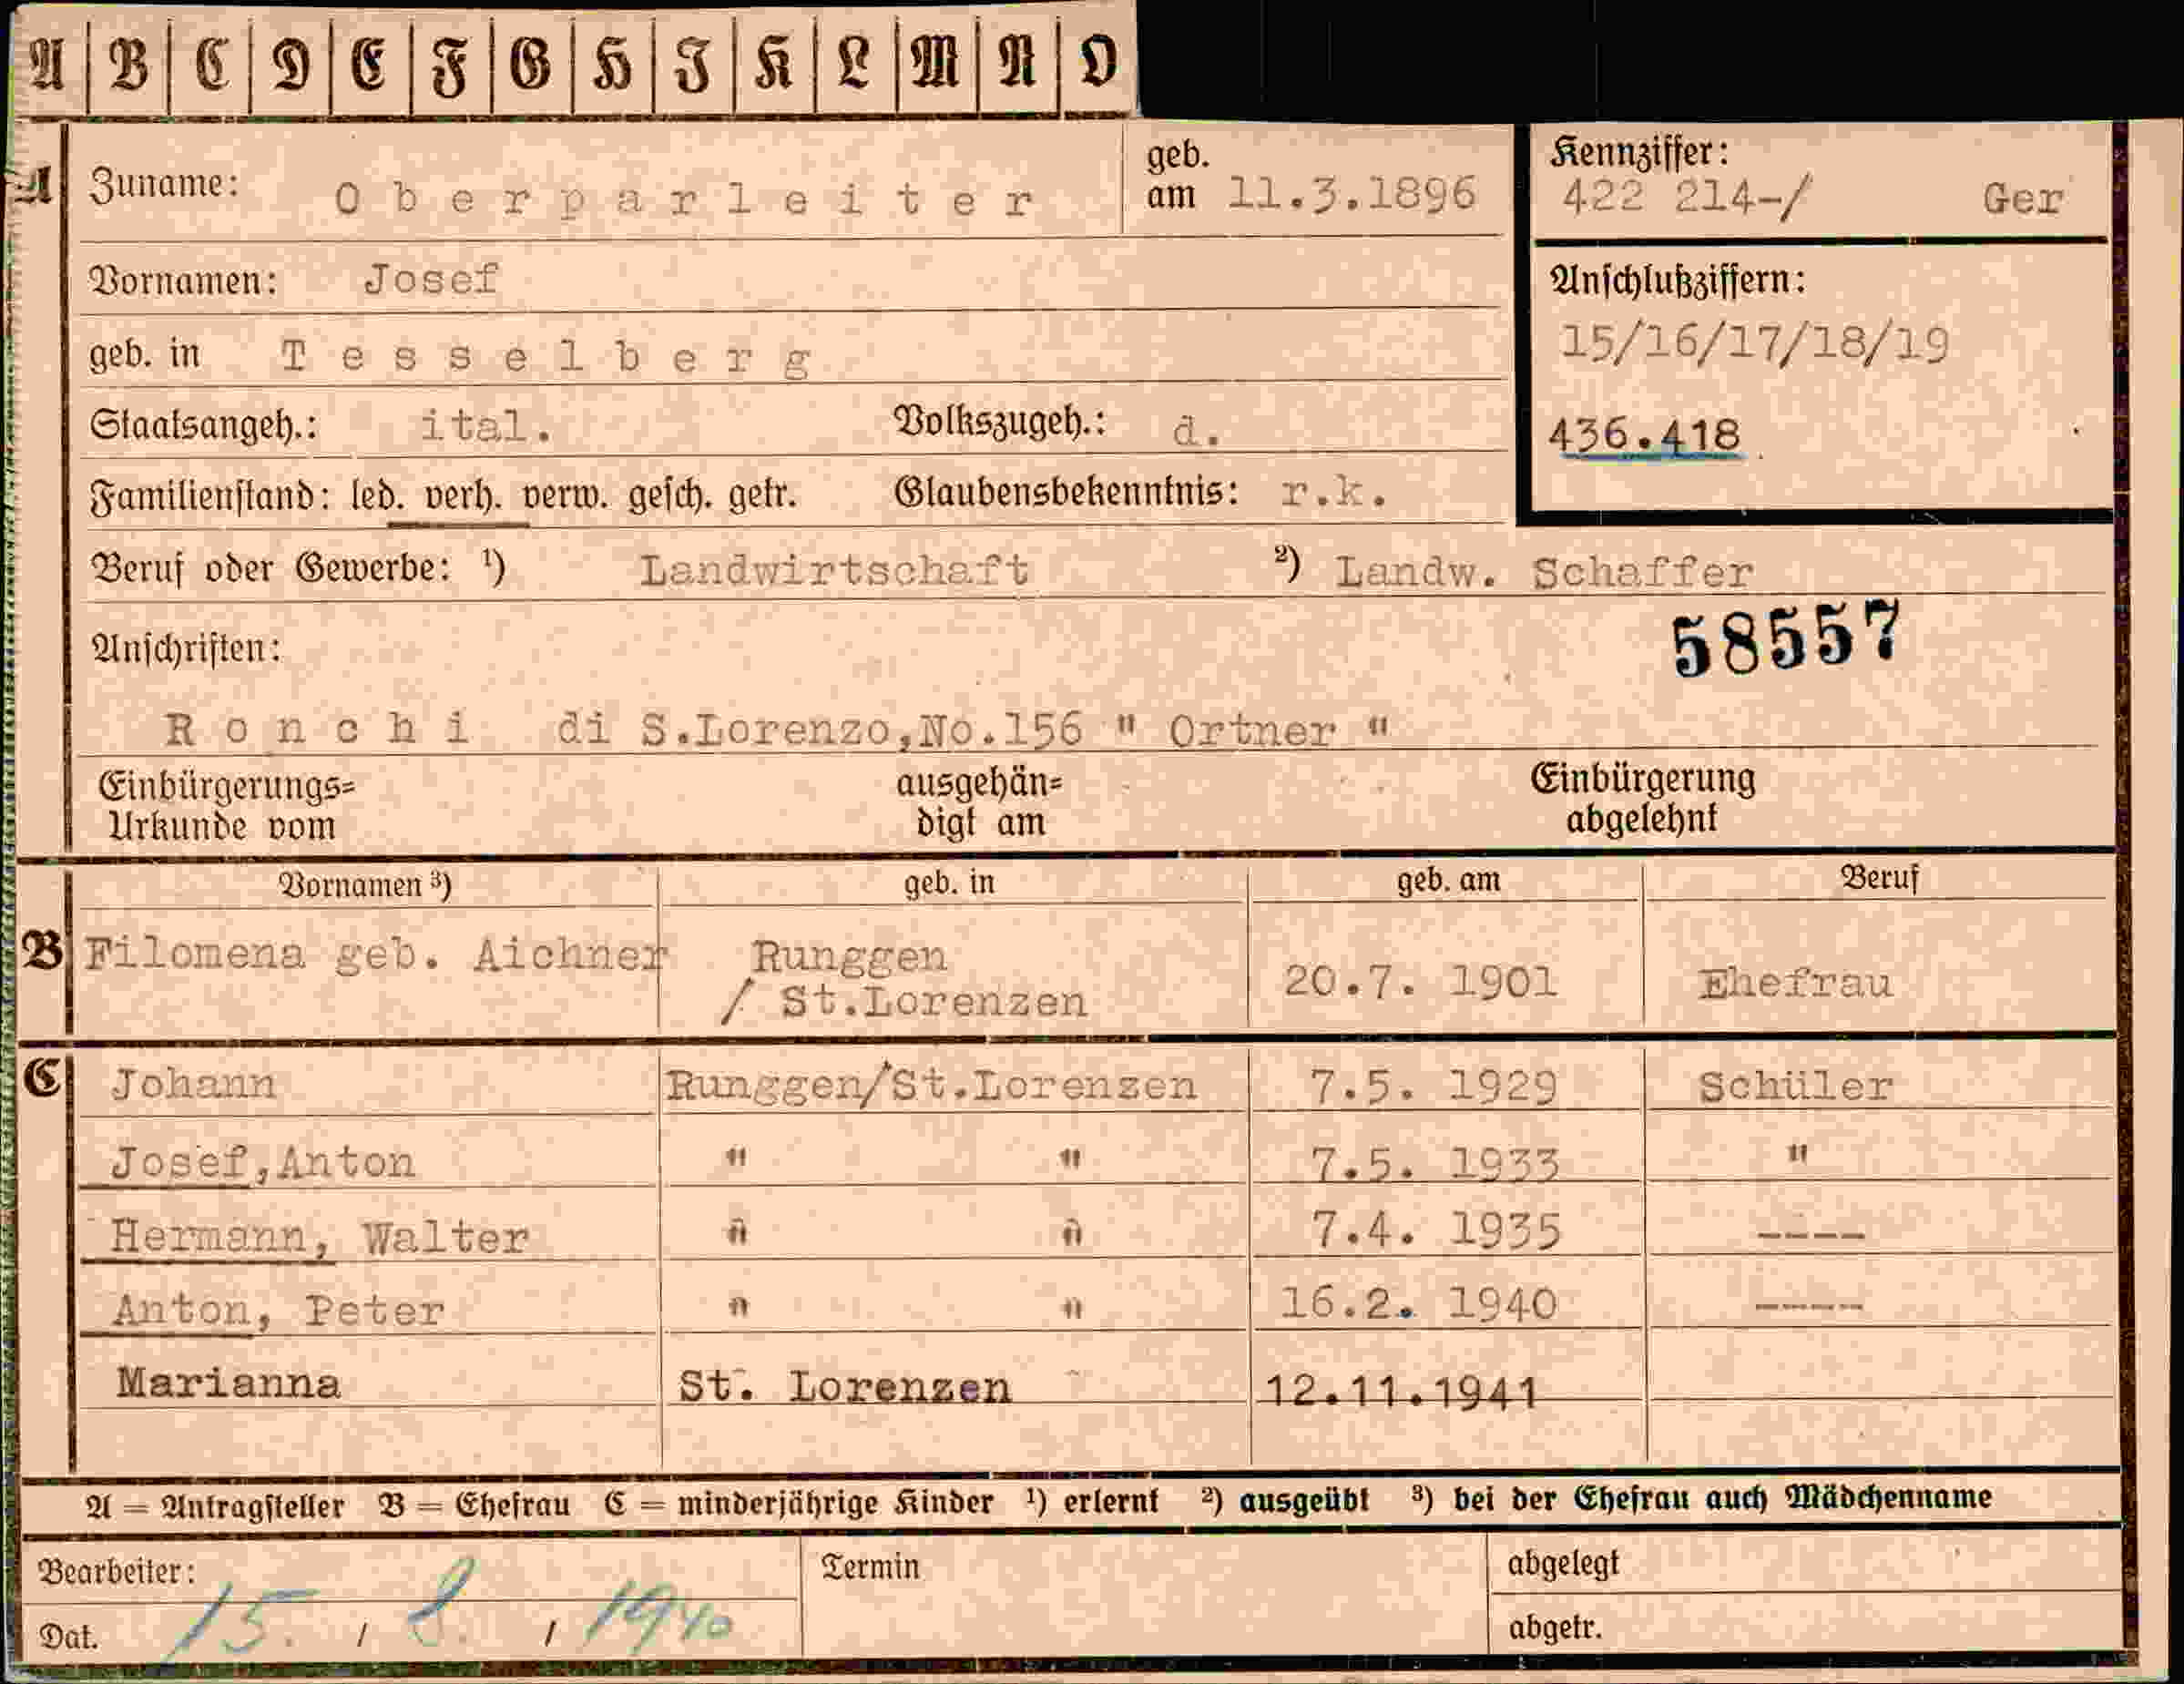 A B C D E F G H I K L M N O
A Zuname: Oberparleiter geb. am 11.3.1896 Kennziffer: 422 214-/ Ger
Vornamen: Josef Anschlußziffern:
geb. in Tesselberg 15/16/17/18/19
Staatsangeh.: ital. Volkszugeh.: d. 436.418
Familienstand: led. verh. verw. gesch. getr. Glaubensbekenntnis: r.k.
Beruf oder Gewerbe: ¹) Landwirtschaft ²) Landw. Schaffer
Anschriften: 58557
Ronchi di S.Lorenzo,No.156 " Ortner "
Einbürgerungs= ausgehän= Einbürgerung
Urkunde vom digt am abgelehnt
Vornamen ³) geb. in geb. am Beruf
B Filomena geb. Aichner Runggen
/ St.Lorenzen 20.7. 1901 Ehefrau
C Johann Runggen/St.Lorenzen 7.5. 1929 Schüler
Josef,Anton " " 7.5. 1933 "
Hermann, Walter " " 7.4. 1935 ----
Anton, Peter " " 16.2. 1940 ----
Marianna St. Lorenzen 12.11.1941
A = Antragsteller B = Ehefrau C = minderjährige Kinder ¹) erlernt ²) ausgeübt ³) bei der Ehefrau auch Mädchenname
Bearbeiter: Termin abgelegt
Dat. 15. / 8. / 1940 abgetr.